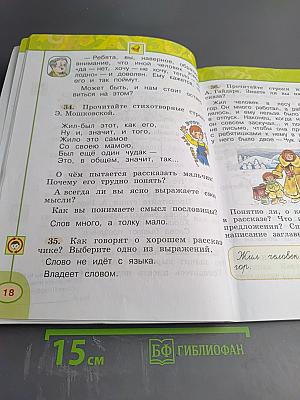 — Ребята, вы, наверное, обра
внимание, что иной человек
«да — нет, хочу — не хочу, тепло
лодно» — и доволен. Ему кажется
его и так поймут.
Может быть, и нам стоит
виться на этом?
34. Прочитайте стихотворные стро
Э. Мошковской.
Жил-был этот, как его,
Ну и, значит, и того,
Жило это самое
Со своею мамою,
Был ещё один чудак —
Это, в общем, значит, так...
О чём пытается рассказать мальчик
Почему его трудно понять?
А всегда ли вы ясно выражаете свои
мысли?
Как вы понимаете смысл пословицы?
Слов много, а толку мало...
35. Как говорят о хорошем рассказ
чике? Выберите одно из выражений.
Слово не идёт с языка.
Владеет словом.
18
36. Прочитайте строки и
А. Гайдара. Знаете ли вы
Жил человек в лесу
гор. Он много работал, а раб
лось, и ему нельзя было
отпуск. Наконец, когда
он совсем заскучал,
ме письмо, чтобы она пр
с ребятишками к нему в
него было двое — Чук
Понятно ли, о к
в рассказе? Что
предложения? Сп
написание заглавн
Жил человек
гор.
15 см
БФ ГИБЛИОФАН